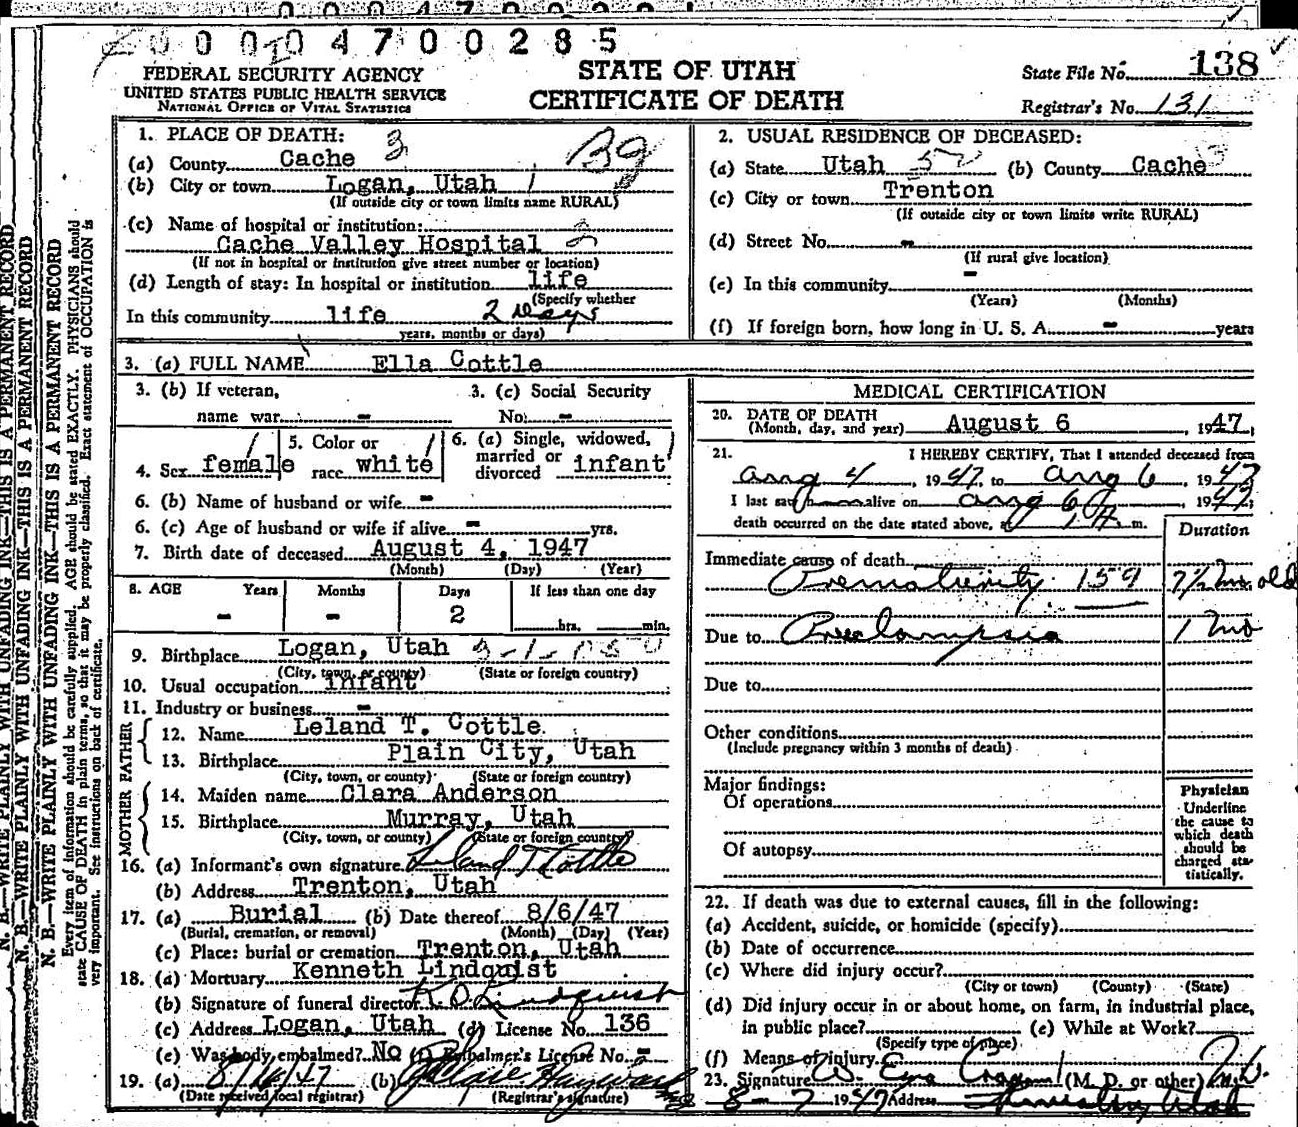 0 0 0 0 4 7 0 0 2 8 5
FEDERAL SECURITY AGENCY
UNITED STATES PUBLIC HEALTH SERVICE
NATIONAL OFFICE OF VITAL STATISTICS
STATE OF UTAH
CERTIFICATE OF DEATH
State File No. 138
Registrar's No. 131
N. B.—WRITE PLAINLY WITH UNFADING INK—THIS IS A PERMANENT RECORD
Every item of information should be carefully supplied. AGE should be stated EXACTLY. PHYSICIANS should
state CAUSE OF DEATH in plain terms, so that it may be properly classified. Exact statement of OCCUPATION is
very important. See instructions on back of certificate.
1. PLACE OF DEATH:
(a) County Cache 3
(b) City or town Logan, Utah 1
(If outside city or town limits name RURAL)
(c) Name of hospital or institution:
Cache Valley Hospital 2
(If not in hospital or institution give street number or location)
(d) Length of stay: In hospital or institution life
(Specify whether
In this community life 2 days
years, months or days)
2. USUAL RESIDENCE OF DECEASED:
(a) State Utah (b) County Cache
(c) City or town Trenton
(If outside city or town limits write RURAL)
(d) Street No. -
(If rural give location)
(e) In this community -
(Years) (Months)
(f) If foreign born, how long in U. S. A. - years
3. (a) FULL NAME Ella Cottle
3. (b) If veteran, 3. (c) Social Security
name war - No. -
4. Sex female 5. Color or race white 6. (a) Single, widowed, married or divorced infant
6. (b) Name of husband or wife -
6. (c) Age of husband or wife if alive - yrs.
7. Birth date of deceased August 4, 1947
(Month) (Day) (Year)
8. AGE Years Months Days If less than one day
- - 2 hrs. min.
9. Birthplace Logan, Utah
(City, town, or county) (State or foreign country)
10. Usual occupation infant
11. Industry or business -
FATHER
12. Name Leland T. Cottle
13. Birthplace Plain City, Utah
(City, town, or county) (State or foreign country)
MOTHER
14. Maiden name Clara Anderson
15. Birthplace Murray, Utah
(City, town, or county) (State or foreign country)
16. (a) Informant's own signature Leland T Cottle
(b) Address Trenton, Utah
17. (a) Burial (b) Date thereof 8/6/47
(Burial, cremation, or removal) (Month) (Day) (Year)
(c) Place: burial or cremation Trenton, Utah
18. (a) Mortuary Kenneth Lindquist
(b) Signature of funeral director K. O. Lindquist
(c) Address Logan, Utah (d) License No. 136
(e) Was body embalmed? No (f) Embalmer's License No. -
19. (a) (b)
(Date received local registrar) (Registrar's signature)
MEDICAL CERTIFICATION
20. DATE OF DEATH
(Month, day, and year) August 6, 1947
21. I HEREBY CERTIFY, That I attended deceased from
Aug 4, 1947, to Aug 6, 1947
I last saw alive on Aug 6, 1947;
death occurred on the date stated above, at m.
Duration
Immediate cause of death
Prematurity 159 7½ mo. old
Due to Preeclampsia 1 mo
Due to
Other conditions
(Include pregnancy within 3 months of death)
Major findings:
Of operations
Of autopsy
Physician
Underline
the cause to
which death
should be
charged sta-
tistically.
22. If death was due to external causes, fill in the following:
(a) Accident, suicide, or homicide (specify)
(b) Date of occurrence
(c) Where did injury occur?
(City or town) (County) (State)
(d) Did injury occur in or about home, on farm, in industrial place,
in public place? (e) While at Work?
(Specify type of place)
(f) Means of injury
23. Signature W. (M. D. or other) M.D.
8-7 1947 Address Utah